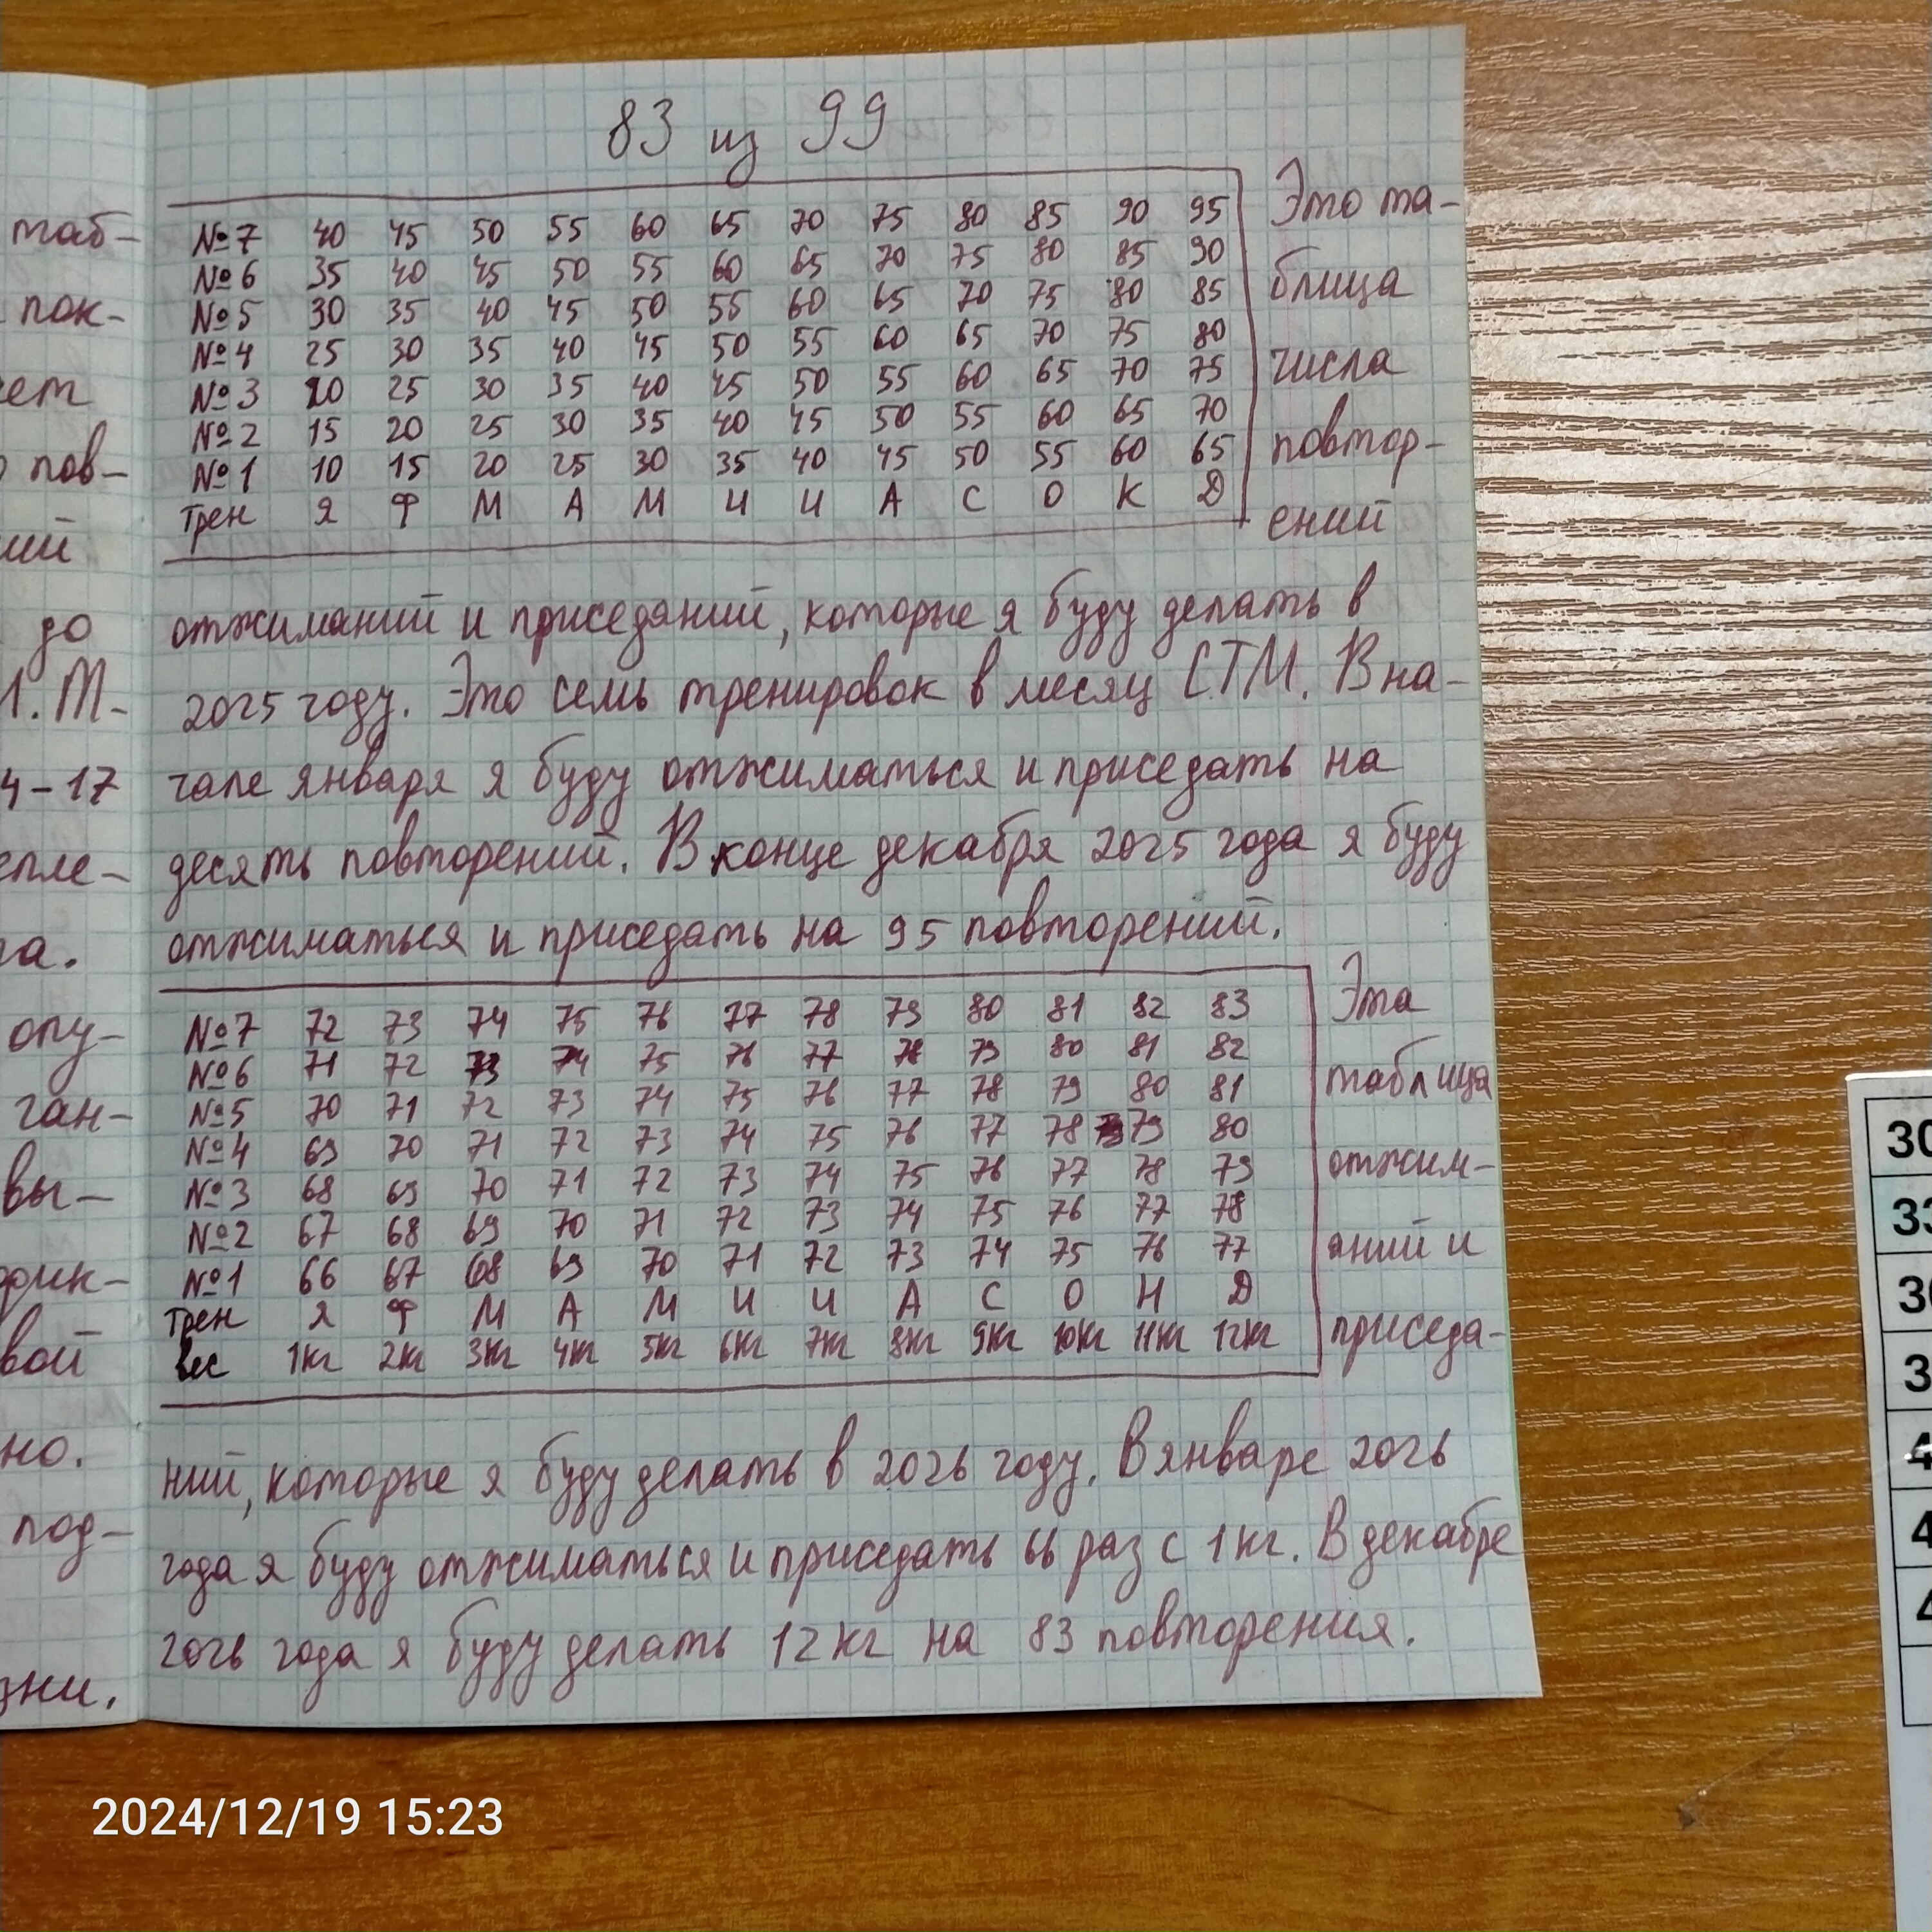 83 из 99
№7 40 45 50 55 60 65 70 75 80 85 90 95 Это та-
№6 35 40 45 50 55 60 65 70 75 80 85 90
№5 30 35 40 45 50 55 60 65 70 75 80 85 блица
№4 25 30 35 40 45 50 55 60 65 70 75 80
№3 20 25 30 35 40 45 50 55 60 65 70 75 числа
№2 15 20 25 30 35 40 45 50 55 60 65 70
№1 10 15 20 25 30 35 40 45 50 55 60 65 повтор-
трен Я Ф М А М И И А С О К Д ений
отжиманий и приседаний, которые я буду делать в
2025 году. Это семь тренировок в месяц СТМ. В на-
чале января я буду отжиматься и приседать на
десять повторений. В конце декабря 2025 года я буду
отжиматься и приседать на 95 повторений.
№7 72 73 74 75 76 77 78 79 80 81 82 83 Эта
№6 71 72 73 74 75 76 77 78 79 80 81 82
№5 70 71 72 73 74 75 76 77 78 79 80 81 таблица
№4 69 70 71 72 73 74 75 76 77 78 79 80
№3 68 69 70 71 72 73 74 75 76 77 78 79 отжим-
№2 67 68 69 70 71 72 73 74 75 76 77 78
№1 66 67 68 69 70 71 72 73 74 75 76 77 аний и
трен Я Ф М А М И И А С О Н Д
вес 1кг 2кг 3кг 4кг 5кг 6кг 7кг 8кг 9кг 10кг 11кг 12кг приседа-
ний, которые я буду делать в 2026 году. В январе 2026
года я буду отжиматься и приседать 66 раз с 1 кг. В декабре
2026 года я буду делать 12 кг на 83 повторения.
таб-
пок-
ет
пов-
ий
до
М-
4-17
епле-
а.
опу-
ган-
вы-
рик-
вой
но.
под-
зни.
30
2024/12/19 15:23